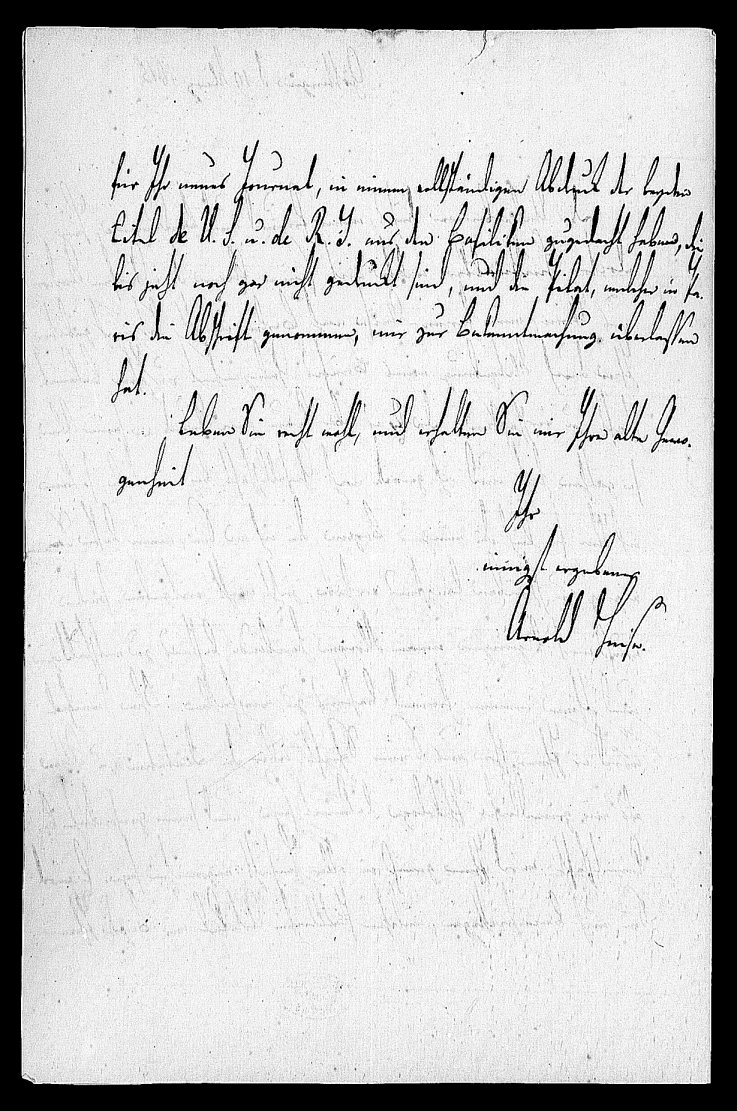 für Ihr neues Journal, in einem vollständigen Abdruck der beyden
Titel de V. S. u. de R. J. aus den Basiliken zugedacht haben, die
bis jetzt noch gar nicht gedruckt sind, und die Pilat, welcher in Pa-
ris die Abschrift genommen, mir zur Bekanntmachung überlassen
hat.
Leben Sie recht wohl, und erhalten Sie mir Ihre alte Gewo-
genheit
Ihr
innigst ergebener
Arnold Heise.